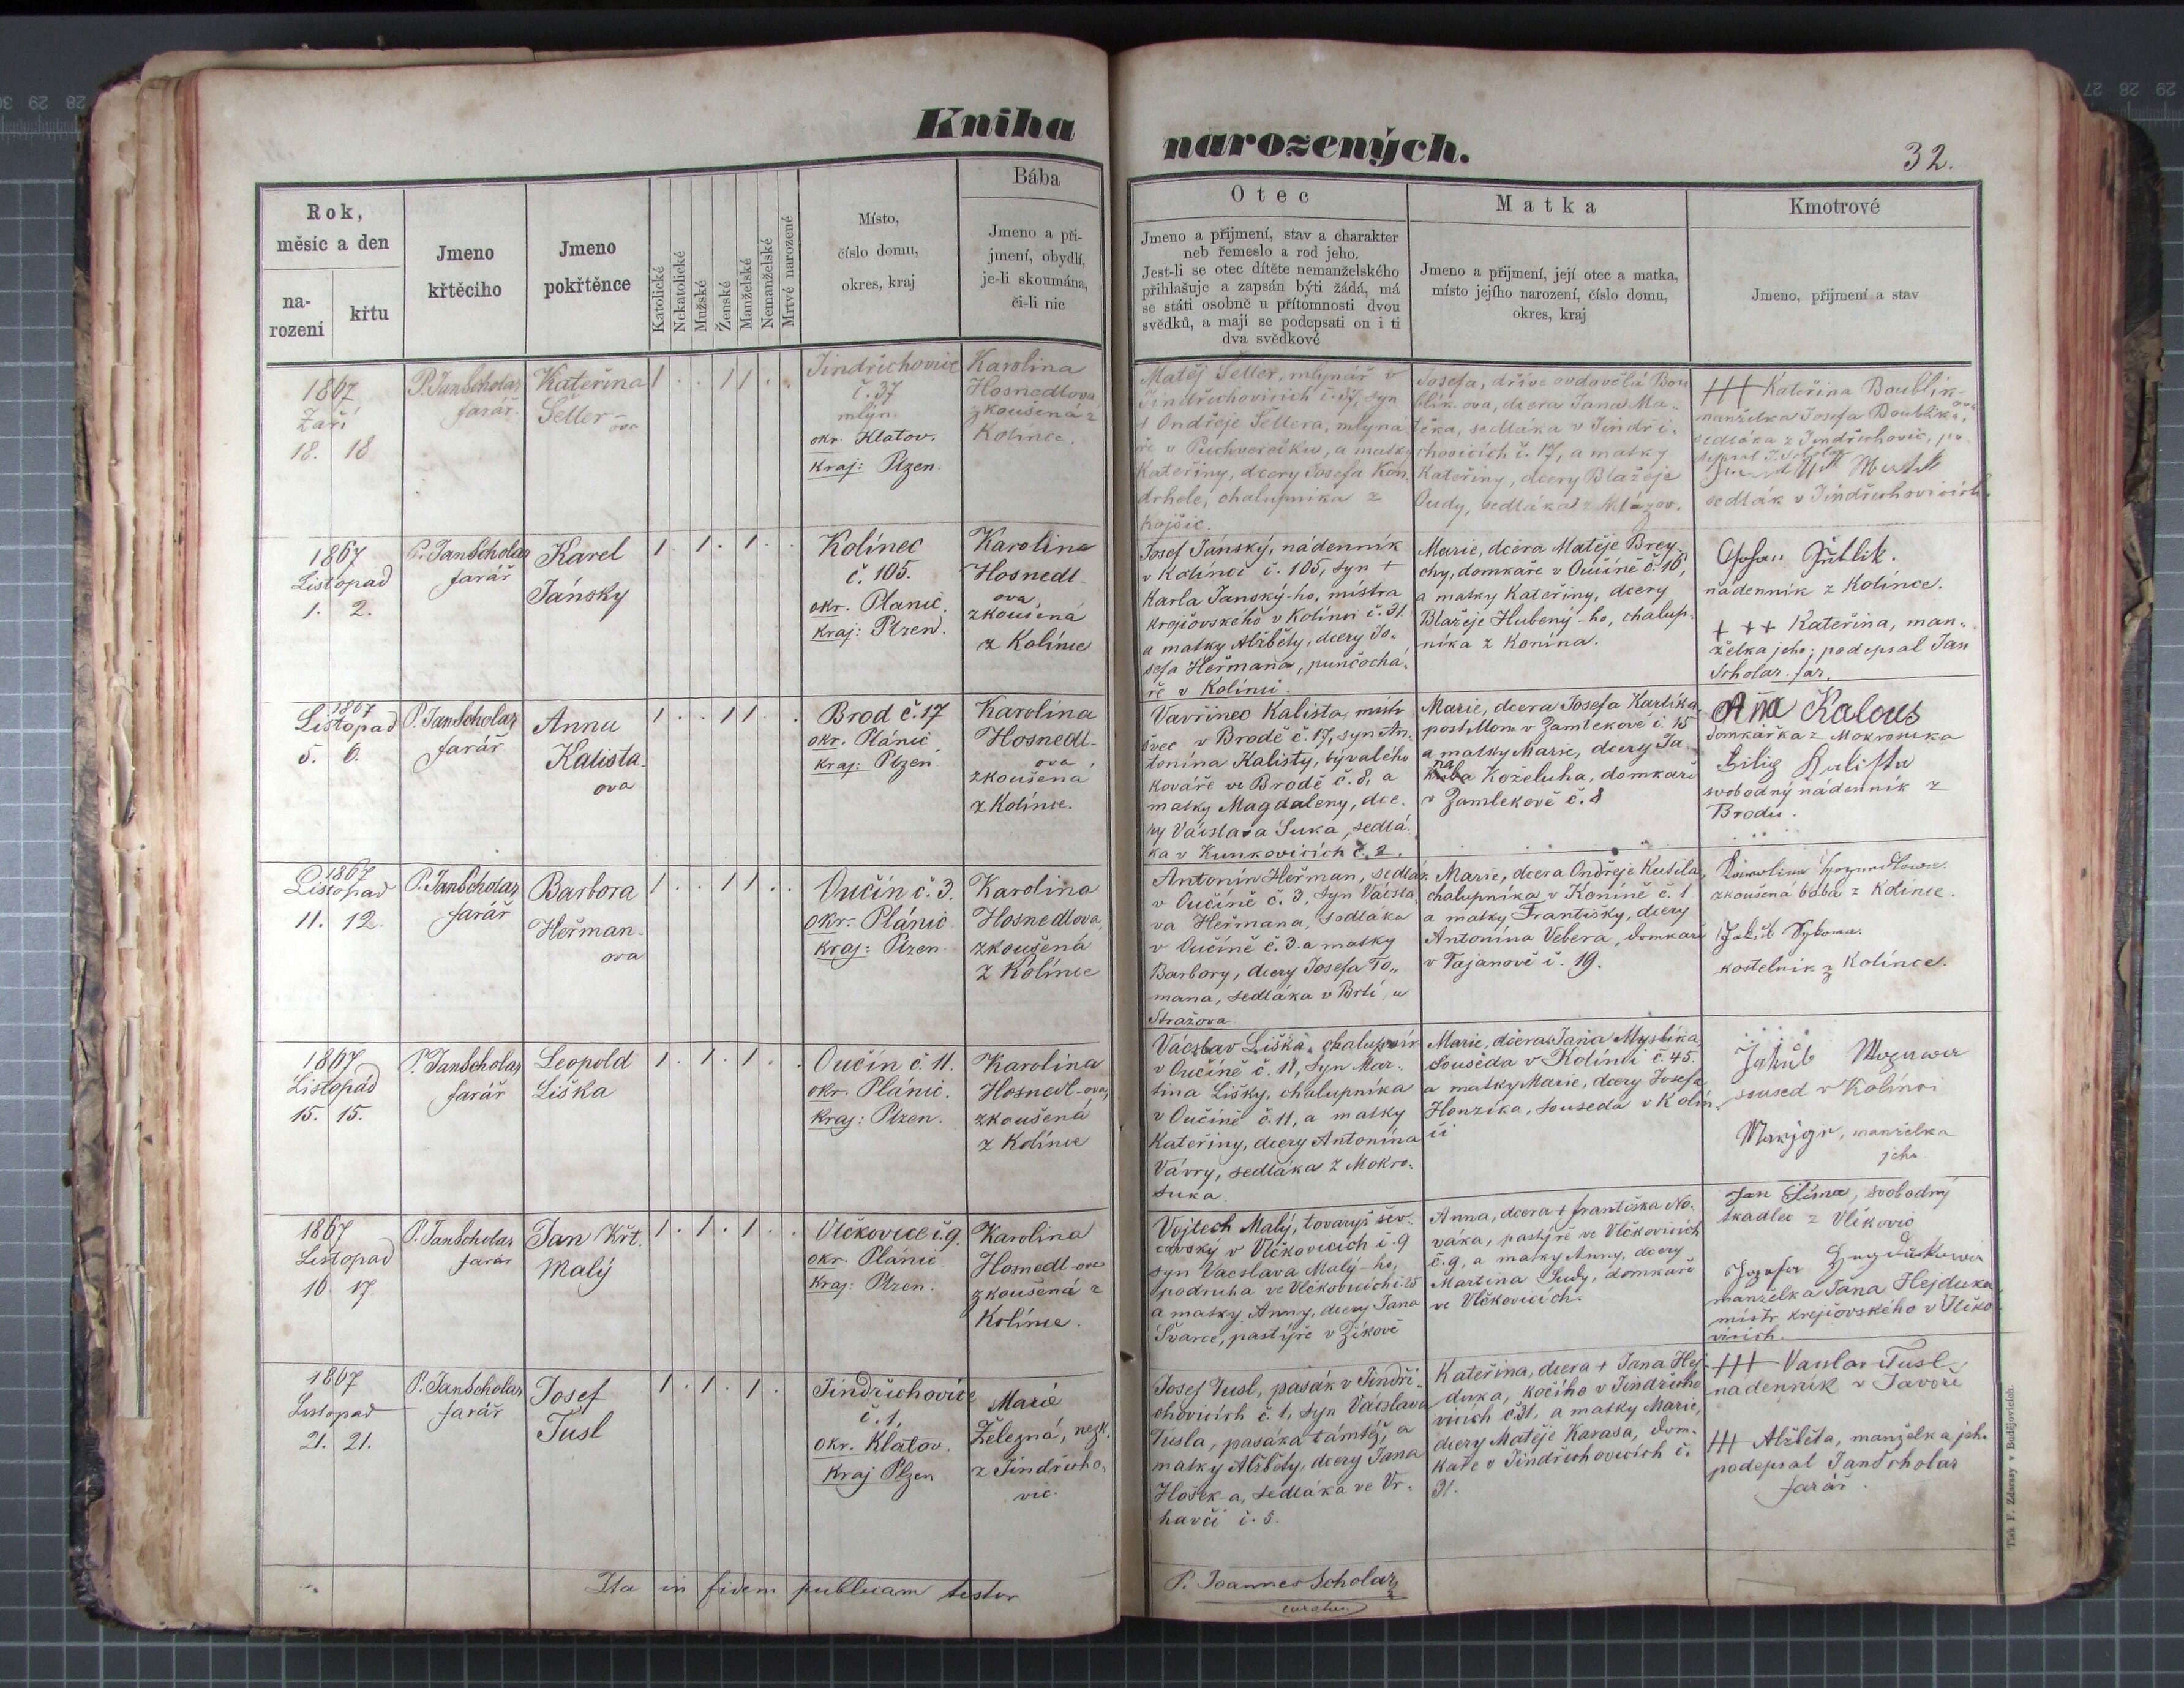 Kniha
narozených.
32.
Rok,
měsíc a den
na-
rozeni
křtu
Jmeno
křtěcího
Jmeno
pokřtěnce
Katolické
Nekatolické
Mužské
Ženské
Manželské
Nemanželské
Mrtvé narozené
Místo,
číslo domu,
okres, kraj
Bába
Jmeno a při-
jmení, obydlí,
je-li skoumána,
či-li nic
Otec
Jmeno a přijmení, stav a charakter
neb řemeslo a rod jeho.
Jest-li se otec dítěte nemanželského
přihlašuje a zapsán býti žádá, má
se státi osobně u přítomnosti dvou
svědků, a mají se podepsati on i ti
dva svědkové
Matka
Jmeno a přijmení, její otec a matka,
místo jejího narození, číslo domu,
okres, kraj
Kmotrové
Jmeno, přijmení a stav
1867
Září
18. 18
P. Jan Scholar
farář.
Kateřina
Šetler-
ova
1 . . 1 1 . .
Jindřichovice
č. 37
mlýn.
okr. Klatov.
Kraj: Plzen.
Karolina
Hosnedlova
zkoušená z
Kolince.
Matěj Šetler, mlynář v
Jindřichovicích č. 37, syn
+ Ondřeje Šetlera, mlyna
ře v Puchverečku, a matky
Kateřiny, dcery Josefa Kon
drhele, chalupníka z
Kojšic.
Josefa, dříve ovdovělá Bou
blik-ova, dcera Jana Ma-
ška, sedláka v Jindři-
chovicích č. 17, a matky
Kateřiny, dcery Blažeje
Oudy, sedláka z
+++ Kateřina Boublik-
ova
manželka Josefa Boublíka,
sedláka z Jindřichovic, po
depsal J. Scholar
sedlák v Jindřichovicích
1867
Listopad
1. 2.
P. Jan Scholar
farář
Karel
Jánský
1 . 1 . 1 . .
Kolínec
č. 105.
okr. Planic.
Kraj: Plzen.
Karolina
Hosnedl-
ova,
zkoušená
z Kolince
Josef Jánský, nádenník
v Kolínci č. 105, syn +
Karla Janský-ho, mistra
krejčovského v Kolínci č. 31
a matky Alžběty, dcery Jo-
sefa Heřmana, punčochá-
ře v Kolínci.
Marie, dcera Matěje Brey-
chy, domkaře v Oučíně č. 16,
a matky Kateřiny, dcery
Blažeje Hubený-ho, chalup-
níka z Konína.
nádenník z Kolínce.
+ + + Kateřina, man-
želka jeho; podepsal Jan
Scholar. far.
1867
Listopad
5. 6.
P. Jan Scholar
farář
Anna
Kalista-
ova
1 . . 1 1 . .
Brod č. 17
okr. Plánic
kraj: Plzen
Karolina
Hosnedl-
ova,
zkoušená
z Kolince.
Vavřinec Kalista, mistr
švec v Brodě č. 17, syn An-
tonína Kalisty, bývalého
kováře ve Brodě č. 8, a
matky Magdaleny, dce-
ry Václava Suka, sedlá-
ka v Kunkovicích č. 2.
Marie, dcera Josefa Kartíka
postillona v Zamlekově č. 15
a matky Marie, dcery Ja
na Koželuha, domkaře
v Zamlekově č. 8
Aňa Kalous
domkařka z Mokrosuka
svobodný nádenník z
Brodu.
1867
Listopad
11. 12.
P. Jan Scholar
farář
Barbora
Heřman-
ova
1 . . 1 1 . .
Oučín č. 3.
okr. Plánic
kraj: Plzen.
Karolina
Hosnedlova,
zkoušená
z Kolince
Antonín Heřman, sedlák
v Oučíně č. 3, syn Václa-
va Heřmana, sedláka
v Oučíně č. 3. a matky
Barbory, dcery Josefa To-
mana, sedláka v Brtí, u
Strážova
Marie, dcera Ondřeje Kutila,
chalupníka v Koníně č. 1
a matky Františky, dcery
Antonína Vebera, domkaře
v Tajanově č. 19.
zkoušená bába z Kolince.
kostelník z Kolínce.
1867
Listopád
15. 15.
P. Jan Scholar
farář
Leopold
Liška
1 . 1 . 1 . .
Oučín č 11.
okr. Plánic.
kraj: Plzen.
Karolina
Hosnedl-ova,
zkoušená
z Kolince
Václav Liška, chalupník
v Oučíně č. 11, syn Mar-
tina Lišky, chalupníka
v Oučíně č. 11, a matky
Kateřiny, dcery Antonína
Vávry, sedláka z Mokro-
suka.
Marie, dcera Jana Myslíka,
souseda v Kolínci č. 45
a matky Marie, dcery Josefa
Honzíka, souseda v Kolín-
ci
Jakub
soused v Kolínci
manželka
jeho
1867
Listopad
16 17
P. Jan Scholar
farár
Jan Křt.
Malý
1 . 1 . 1 . .
Vlčkovice č. 9.
okr. Plánic
Kraj: Plzen.
Karolina
Hosnedl-ova
zkoušená z
Kolínce.
Vojtech Malý, tovaryš šev-
covský v Vlčkovicích č. 9
syn Vacslava Malý-ho,
podruha ve Vlčkovicích č. 25
a matky Anny, dcery Jana
Švarce, pastýře v Žikově
Anna, dcera + františka No-
váka, pastýře ve Vlčkovicích
č. 9, a matky Anny, dcery
Martina Sudy, domkaře
ve Vlčkovicích.
Jan Šima, svobodný
tkadlec z Vlčkovic
manželka Jana Hejduka
mistr. krejčovského v Vlčko
vicích.
1867
Listopad
21. 21.
P. Jan Scholar
farář
Josef
Tusl
1 . 1 . 1 .
Jindřichovice
č. 1,
okr. Klatov.
Kraj Plzen
Marie
Železná, nezk.
z Jindřicho-
vic.
Josef Tusl, pasák v Jindři-
chovicích č. 1, syn Václava
Tusla, pasáka tamtéž, a
matky Alžběty, dcery Jana
Hošek-a, sedláka ve Vr-
havči č. 5.
Kateřina, dcera + Jana Hej-
duka, kočího v Jindřicho
vicích č 31, a matky Marie,
dcery Matěje Karasa, dom-
kaře v Jindřichovicích č.
31.
+++ Vaclav Tusl,
nádenník v Javoří
+++ Alžběta, manželka jeho
podepsal Jan Scholar
farář.
Ita in fidem publicam testor
P. Joannes Scholar
curatus
Tisk F. Zdarssy v Budějovicích.